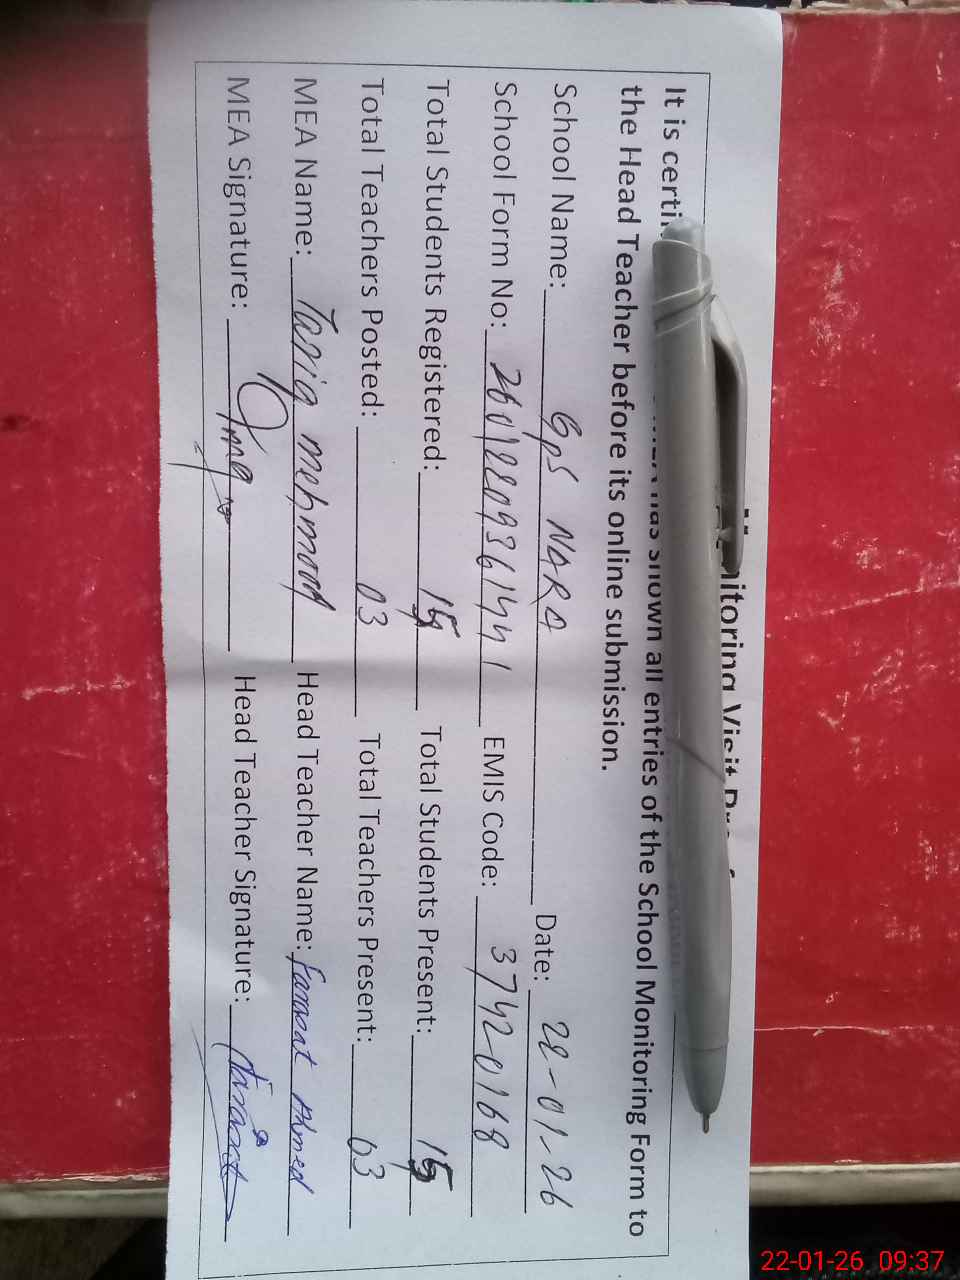 Monitoring Visit
has shown all entries of the School Monitoring Form to
the Head Teacher before its online submission.
School Name: GPS NARA Date: 22-01-26
School Form No: EMIS Code: 37420168
Total Students Registered: Total Students Present:
Total Teachers Posted: 03 Total Teachers Present: 03
MEA Name: Tariq mehmood Head Teacher Name: Farasat Ahmed
MEA Signature: Head Teacher Signature:
22-01-26 09:37